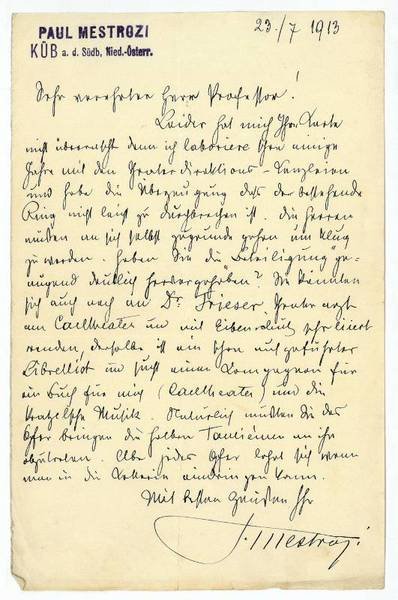 PAUL MESTROZI
KÜB a. d. Südb, Nied.-Österr.
23./7 1913
Sehr verehrter Herr Professor!
Leider hat mich Ihre Karte
nicht überrascht denn ich laboriere schon einige
Jahre mit den Theaterdirektions-Kanzleien
und habe die Überzeugung dass der bestehende
Ring nicht leicht zu durchbrechen ist. Die Herren
müssen an sich selbst zugrunde gehen um klug
zu werden. Haben Sie die Beteiligung ge-
nügend deutlich hervorgehoben? Sie könnten
sich auch noch an Dr. Frieser, Theaterarzt
am Carltheater und mit Eibenschütz sehr liiert
wenden, derselbe ist ein schon aufgeführter
Librettist und sucht einen Compagnon für
ein Buch für mich (Carltheater) und die
Musik. Natürlich müssten Sie das
Opfer bringen die halben Tantiemen an ihn
abzutreten. Aber jedes Opfer lohnt sich wenn
man in die eindringen kann.
Mit besten Grüßen Ihr
P. Mestrozi